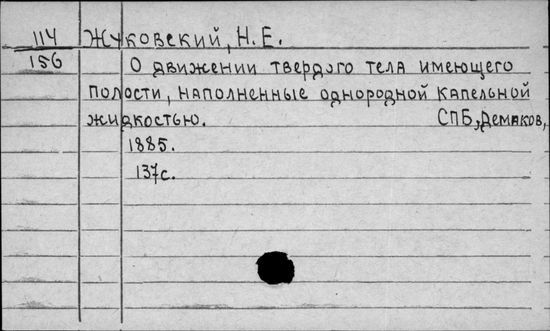 114 Жуковский, Н.Е.
156 О движении твердого тела имеющего
полости, наполненные однородной капельной
жидкостью. СПБ, Демаков,
1885.
137с.